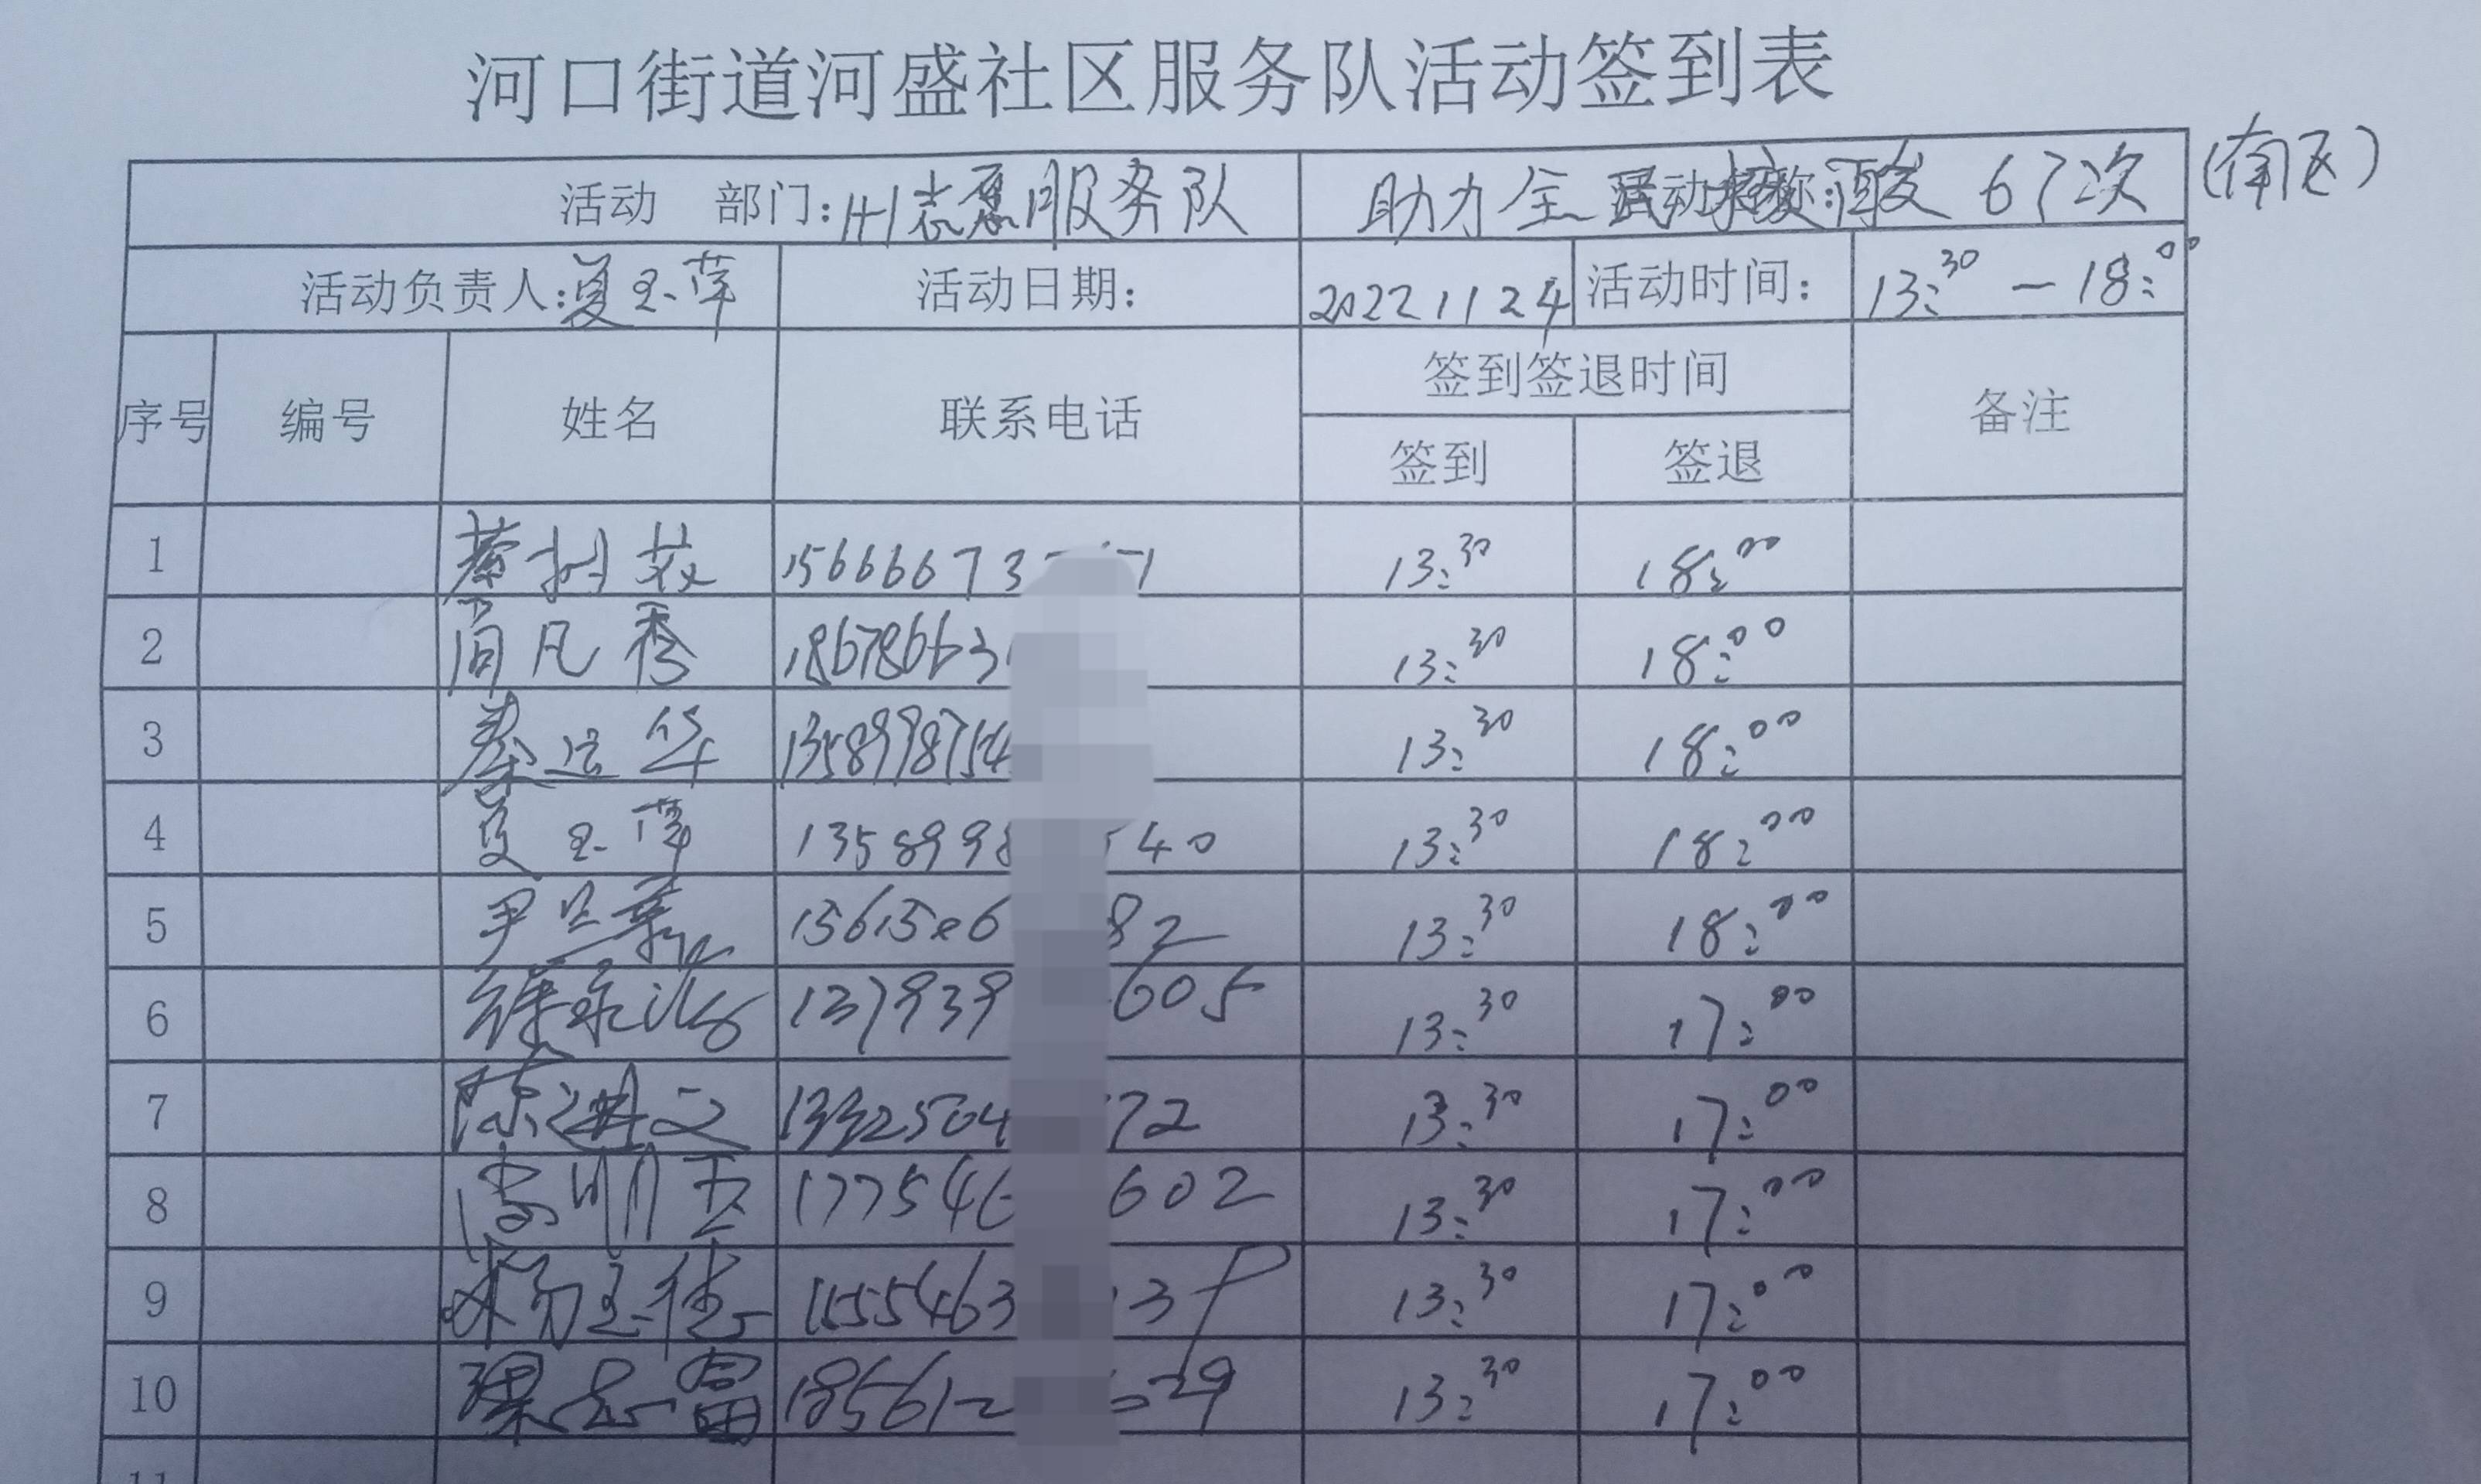 河口街道河盛社区服务队活动签到表
活动 部门: 州志愿服务队 活动名称: 助力全民核酸 67次 (南区)
活动负责人: 夏玉萍 活动日期: 2022 11 24 活动时间: 13:30 — 18:00
序号 编号 姓名 联系电话 签到签退时间 备注
签到 签退
1 1566667 3 1 13:30 18:00
2 凡秀 18678663 13:30 18:00
3 秦运华 1358998754 13:30 18:00
4 夏玉萍 1358998 540 13:30 18:00
5 尹兰英 1561506 82 13:30 18:00
6 薛永 137939 605 13:30 17:00
7 陈进文 1332504 72 13:30 17:00
8 李顺玉 177546 602 13:30 17:00
9 杨玉佳 1555463 13 9 13:30 17:00
10 梁志富 185612 29 13:30 17:00
11